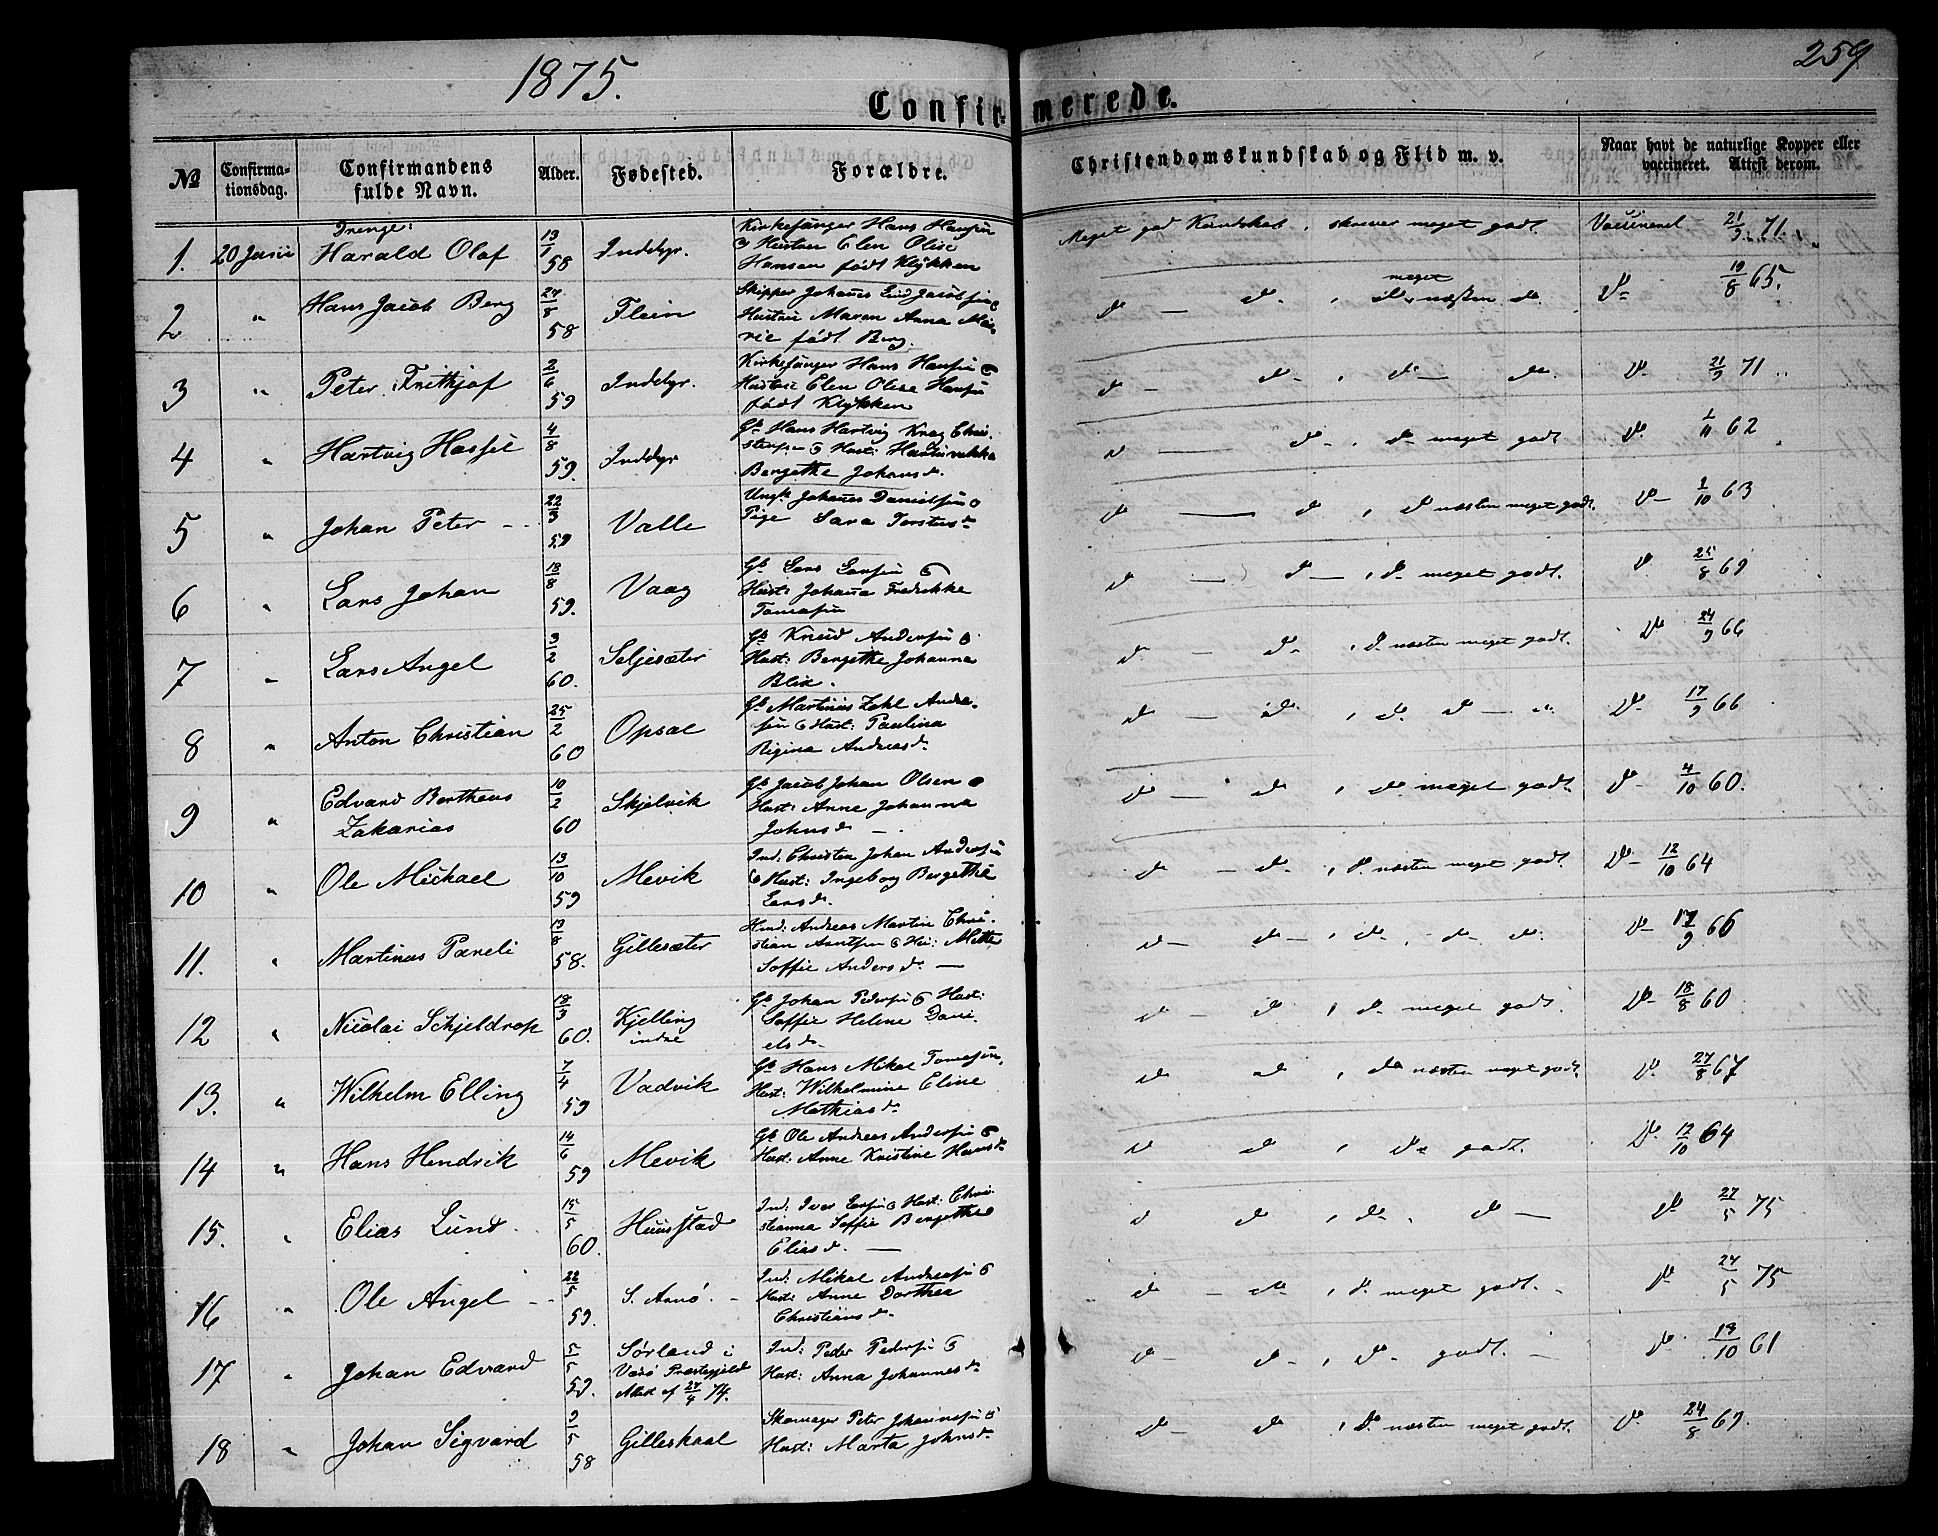 1875.
259
Confirmerede.
No
Confirmationsdag.
Confirmandens fulde Navn.
Alder.
Fødested.
Forældre.
Christendomskundskab og Flid m. v.
Naar havt de naturlige Kopper eller vaccineret. Attest derom.
Drenge:
1. 20 Juni Harald Olaf 13/1 58 Inddyr. Kirkesanger Hans Hansen
& Hustru Elen Olise
Hansen født Klykken
Meget god Kundskab, skrever meget godt. Vaccineret 21/9 71.
2 " Hans Jacob Berg 27/8 58 Flein Skipper Johannes Jacobsen &
Hustru Maren Anna Ma-
rie født Berg.
do — do , meget næsten do do 19/8 65.
3 " Peter Frithjof 2/6 59 Inddyr. Kirkesanger Hans Hansen &
Hustru Elen Olise Hansen
født Klykken
do — do , do — do. do 21/9 71
4 " Hartvig Hassel 4/8 59. Inddyr Gb Hans Hartvig Krag Chri-
stensen & Hust:
Bergethe Johansd.
do — do , do meget godt do 1/11 62
5 " Johan Peter 22/3 59 Valle Ungk. Johannes Danielsen &
Pige Sara Torstensd.
do — do , do næsten meget godt. do 1/10 63
6 " Lars Johan 18/8 59. Vaag Gb Lars Larsen &
Hust: Johanna Fredrikke
Tomasen
do — do — , do meget godt. do 25/8 69
7 " Lars Angel 3/2 60. Seljesæter Gb Knud Andersen &
Hust: Bergethe Johanna
Blix.
do — do , do næsten meget godt. do 24/9 66
8 " Anton Christian 25/2 60 Opsal Gb Martinus Zahl Andre-
sen & Hust: Paulina
Regina Andreasd.
do — do , do do — " do 17/9 66
9 " Edvard Bertheus
Zakarias 10/2 60 Skjelvik Gb Jacob Johan Olsen &
Hust: Anne Johanna
Johnsd. —
do — do , do meget godt. do 4/10 60.
10 " Ole Michael 13/10 59 Mevik Ind: Christen Johan Andersen
& Hust: Ingeborg Bergethe
Larsd.
do — do , do næsten meget godt. do 12/10 64
11. " Martinus Pareli 13/8 58. Gillesæter Hmd: Andreas Martin Chri-
stian Arntsen & Hu: Mette
Soffie Andersd. —
do — do — , do , do do. do 17/9 66
12 " Nicolai Schjeldrop 18/3 60. Kjelling
indre Gb Johan Pedersen & Hust:
Soffie Helene Dani-
elsd.
do — do , do meget godt do 18/8 60
13. " Wilhelm Elling 7/4 59 Vadvik Gb Hans Mikal Tomasen,
Hust: Wilhelmine Eline
Mathiasd.
do do , do næsten meget godt. do 27/8 67
14 " Hans Hendrik 14/6 59 Mevik Gb Ole Andreas Andersen &
Hust: Anne Kristine Hansd.
do do , do godt. do 12/10 64
15. " Elias Lund 15/5 60. Huusstad Ind: Iver Larsen & Hust: Chri-
stianna Soffie Bergethe
Eliasd. —
do do , do. do — do 27/5 75
16 " Ole Angel 22/5 59. S. Arnø. Ind: Mikal Andreasen &
Hust: Anne Dorthea
Christiansd.
do — do , do meget godt. do 24/5 75
17 " Johan Edvard 5/5 59. Sørland i
Værø Præstegjeld
Attest af 27/4 74. Ind: Peder Pedersen &
Hust: Anna Johannesd.
do — do , do godt. — do 18/10 61
18 " Johan Sigvard 9/5 58 Gilleskaal Skomager Peter Johannesen &
Hust: Marta Johnsd.
do — do , do næsten meget godt. do 24/8 69.